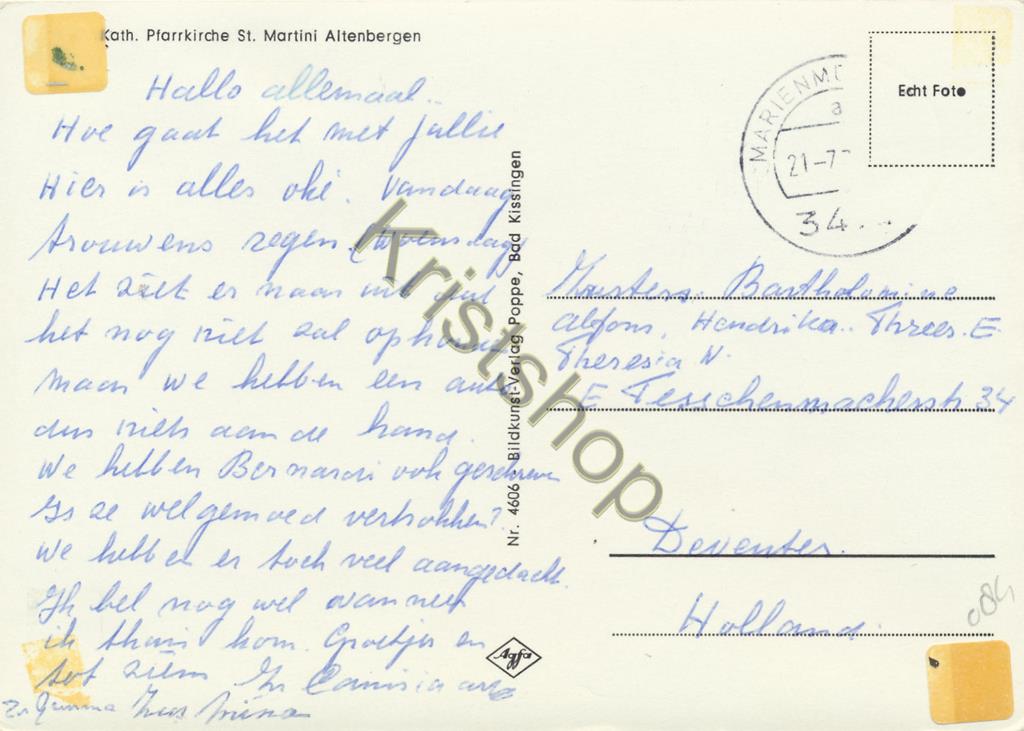 Kath. Pfarrkirche St. Martini Altenbergen
Hallo allemaal..
Hoe gaat het met jullie
Hier is alles oké. Vandaag
trouwens regen. (Woensdag)
Het ziet er naar uit dat
het nog niet zal ophouden
maar we hebben een auto
dus niets aan de hand.
We hebben Bernardi ook geschreven
Is ze welgemoed vertrokken?
We hebben er toch veel aangedacht.
Ik bel nog wel wanneer
ik thuis kom. Groetjes en
tot ziens Zr
Zr Gemma
Nr. 4606 Bildkunst-Verlag Poppe, Bad Kissingen
Agfa
MARIENM
a
21-7
34
Echt Foto
Zusters. Bartholomine
Alfons, Hendrika. Threes. E.
Theresia N.
E Tesschenmacherstr 34
Deventer.
Holland.
084
Kristshop